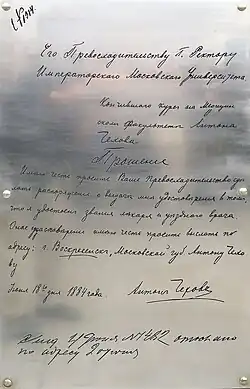 Его Превосходительству Г. Ректору
Императорского Московского Университета
Кончившего курс на Медицин
ском Факультете Антона
Чехова
Прошение
Имею честь просить Ваше Превосходительство сде
лать распоряжение о выдаче мне удостоверения в том,
что я удостоен звания лекаря и уездного врача
Оное удостоверение имею честь просить выслать по
адресу: г. Воскресенск, Московской губ. Антону Чехо
ву
Июня 18го дня 1884 года. Антон Чехов
июня № 1482
по адресу 20 июня